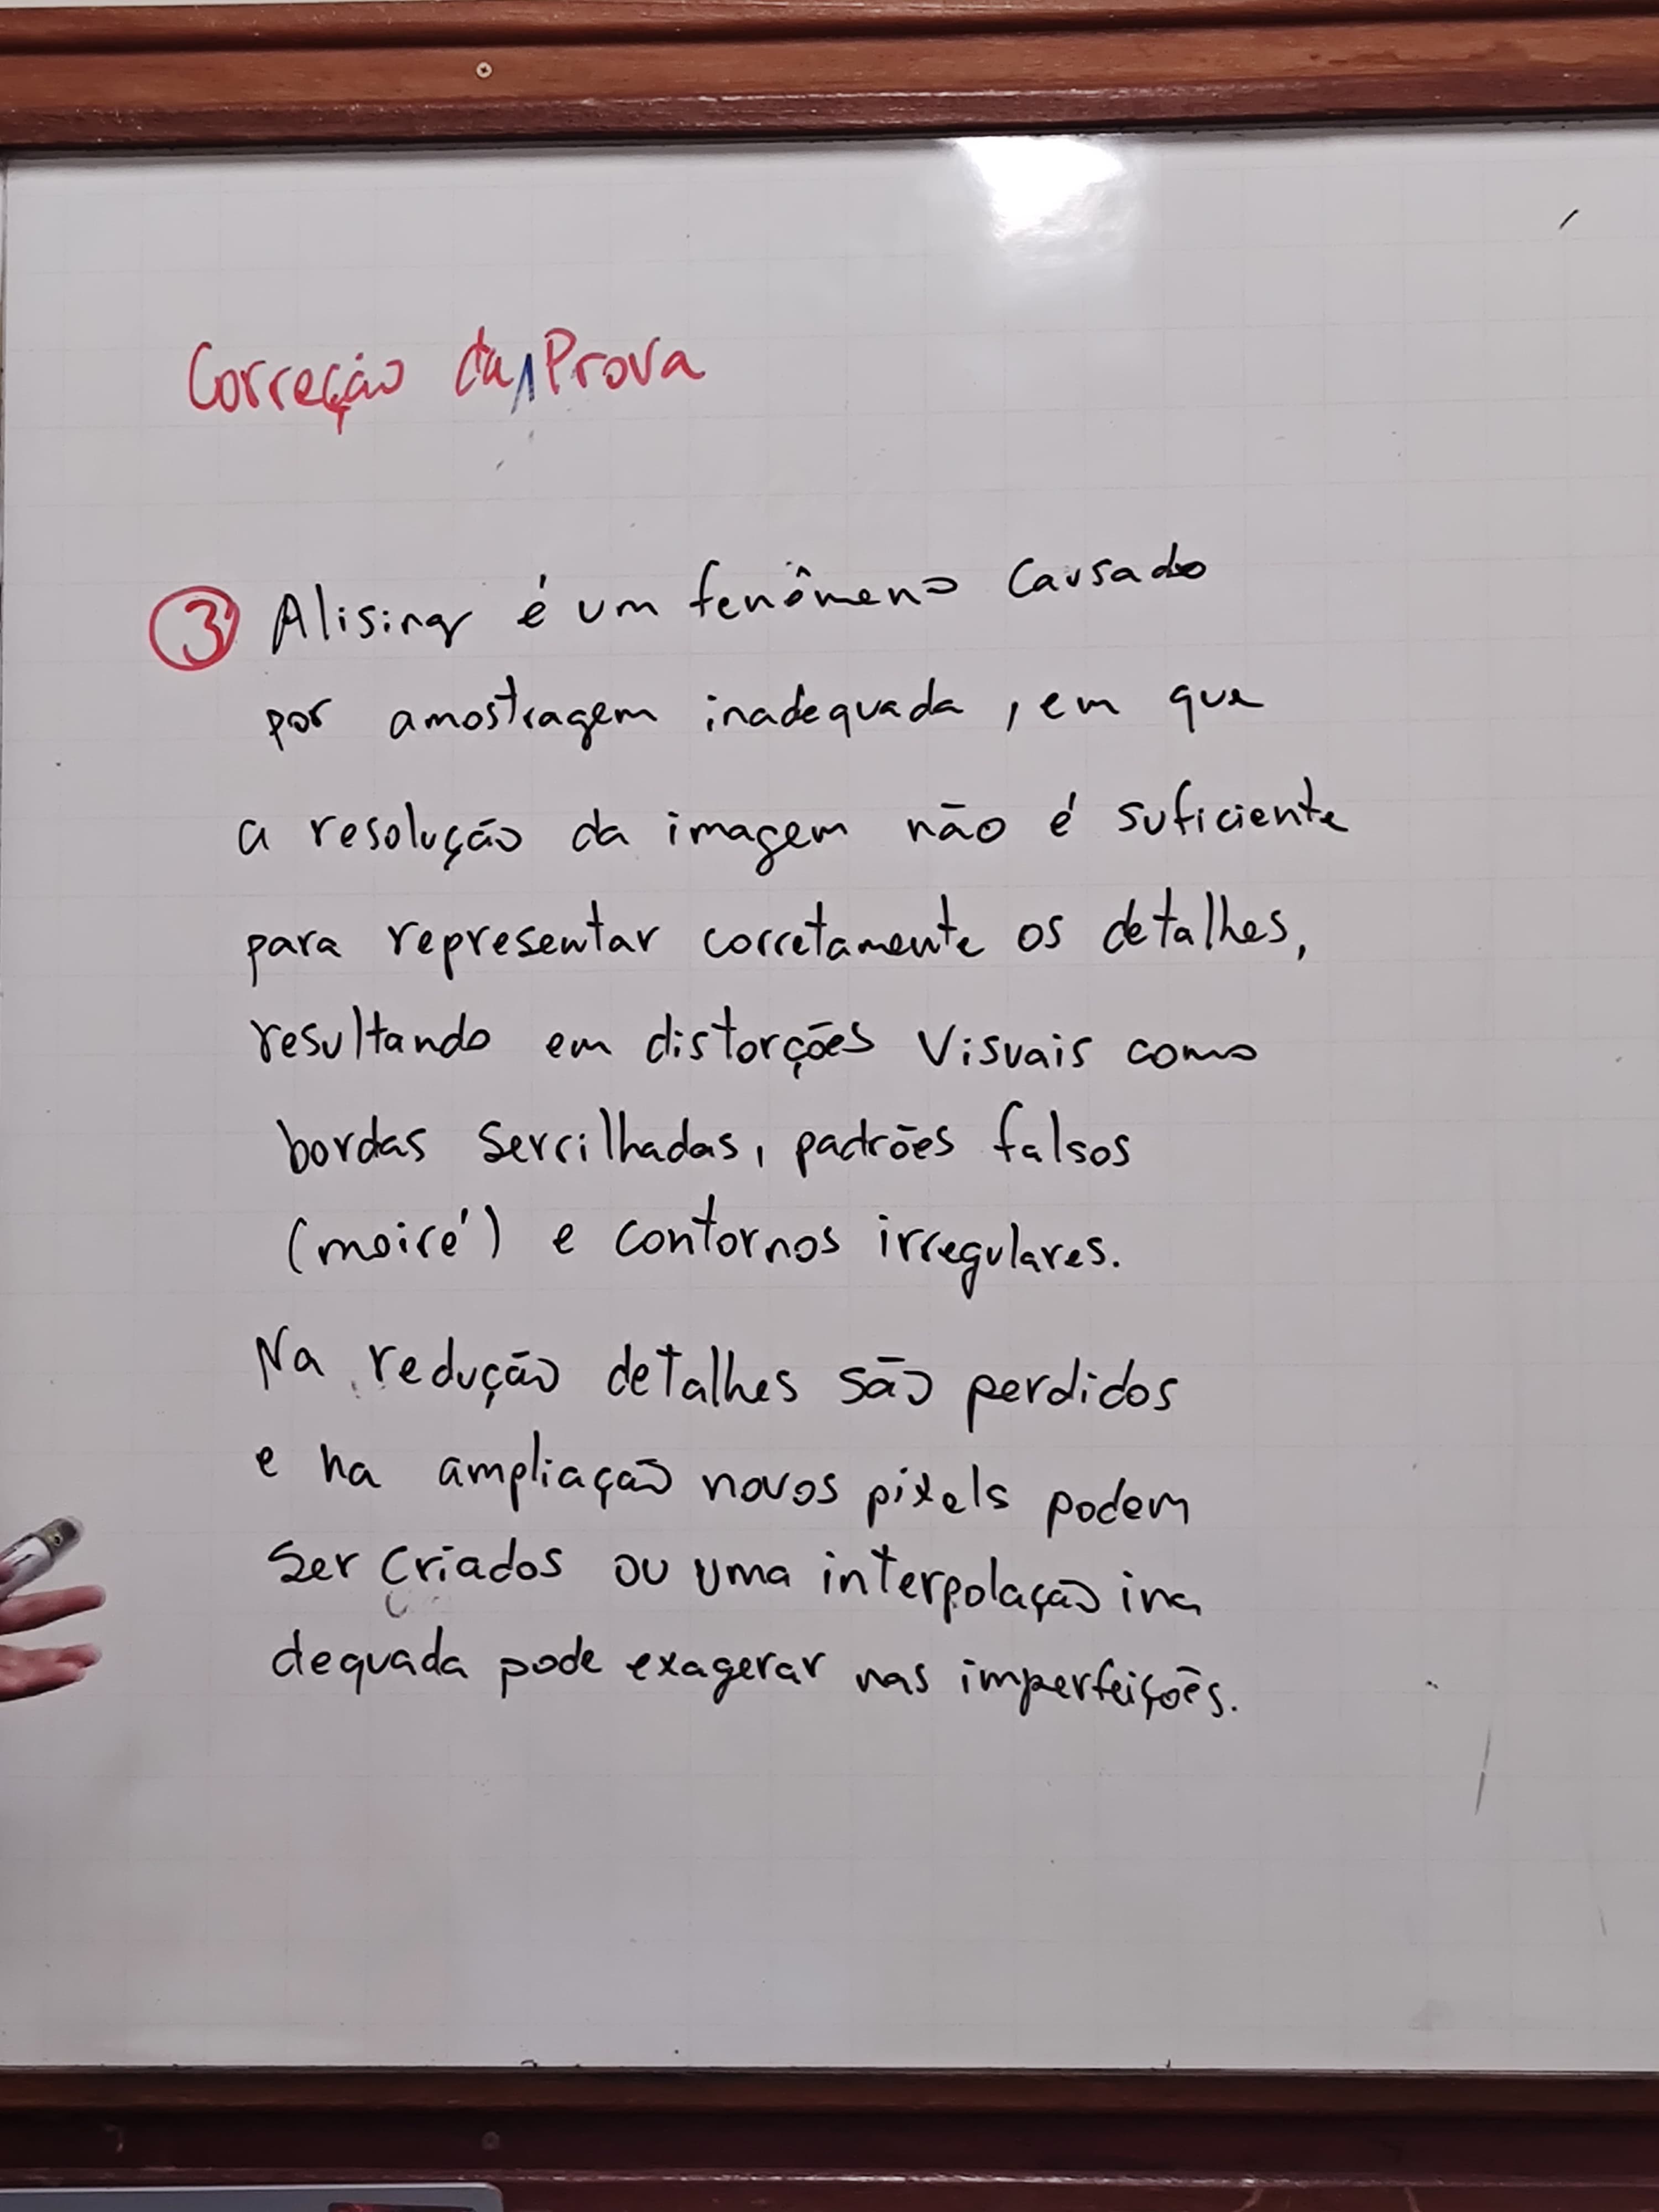 Correção da Prova
3 Alising é um fenômeno causado
por amostragem inadequada, em que
a resolução da imagem não é suficiente
para representar corretamente os detalhes,
resultando em distorções visuais como
bordas serrilhadas, padrões falsos
(moiré) e contornos irregulares.
Na redução detalhes são perdidos
e na ampliação novos pixels podem
ser criados ou uma interpolação ina
dequada pode exagerar nas imperfeições.